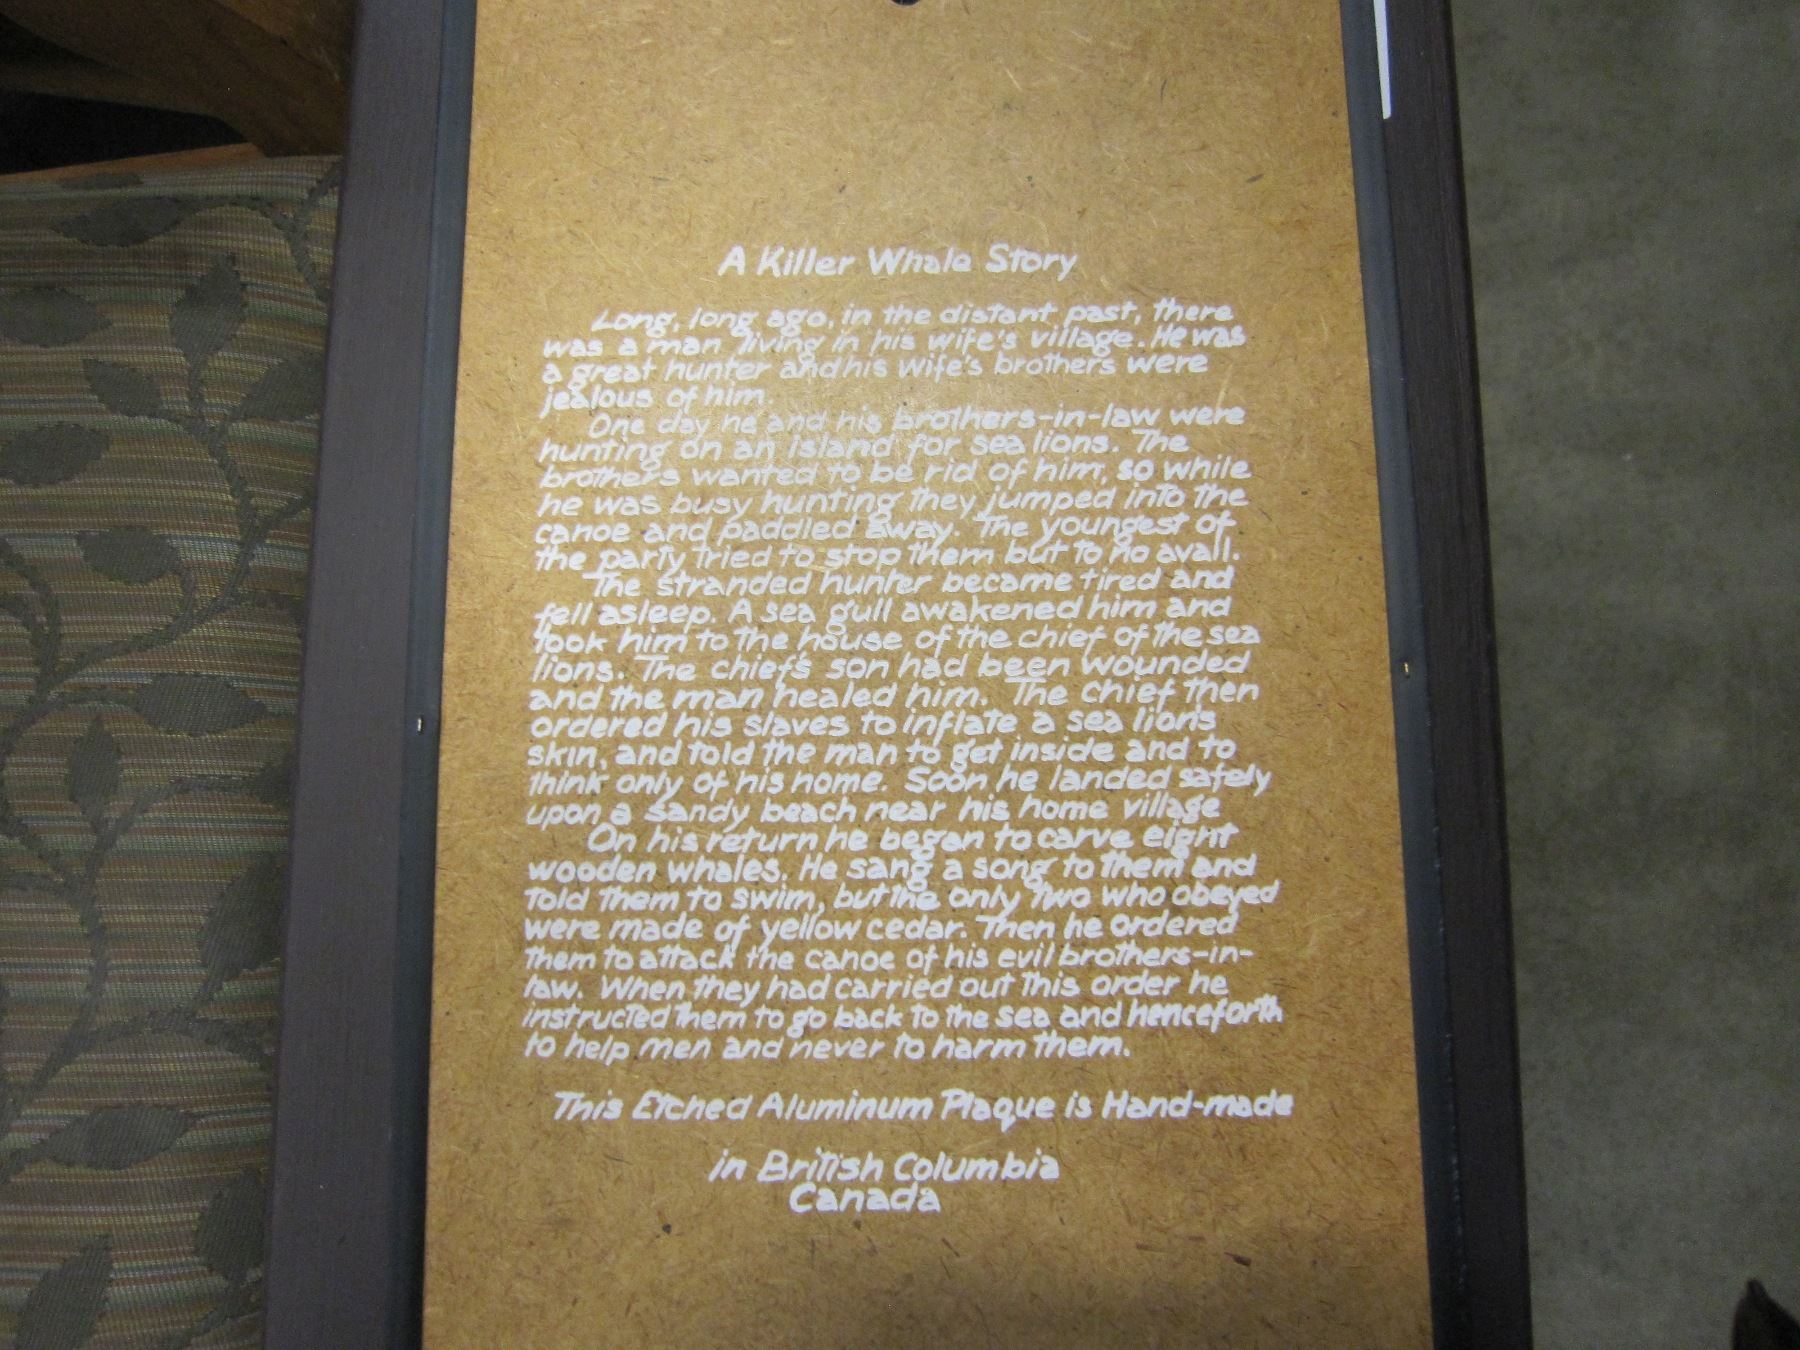 A Killer Whale Story
Long, long ago, in the distant past, there
was a man living in his wife's village. He was
a great hunter and his wife's brothers were
jealous of him.
One day he and his brothers-in-law were
hunting on an island for sea lions. The
brothers wanted to be rid of him, so while
he was busy hunting they jumped into the
canoe and paddled away. The youngest of
the party tried to stop them but to no avail.
The stranded hunter became tired and
fell asleep. A sea gull awakened him and
took him to the house of the chief of the sea
lions. The chief's son had been wounded
and the man healed him. The chief then
ordered his slaves to inflate a sea lion's
skin, and told the man to get inside and to
think only of his home. Soon he landed safely
upon a sandy beach near his home village
On his return he began to carve eight
wooden whales. He sang a song to them and
told them to swim, but the only two who obeyed
were made of yellow cedar. Then he ordered
them to attack the canoe of his evil brothers-in-
law. When they had carried out this order he
instructed them to go back to the sea and henceforth
to help men and never to harm them.
This Etched Aluminum Plaque is Hand-made
in British Columbia
Canada